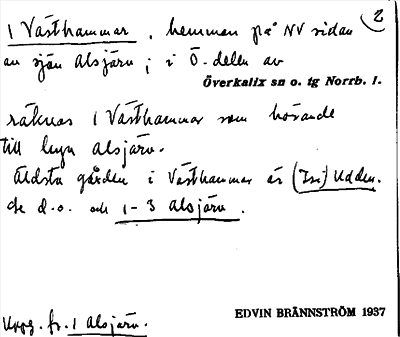 2
1 Västhammar, hemman på NV sidan
av sjön Alsjärv; i Ö. delen av
Överkalix sn o. tg Norrb. l.
räknas 1 Västhammar som hörande
till byn Alsjärv.
Äldsta gården i Västhammar är (Isr.) Udden.
Se d.o. och 1-3 Alsjärv.
EDVIN BRÄNNSTRÖM 1937
Uppg. fr. 1 Alsjärv.